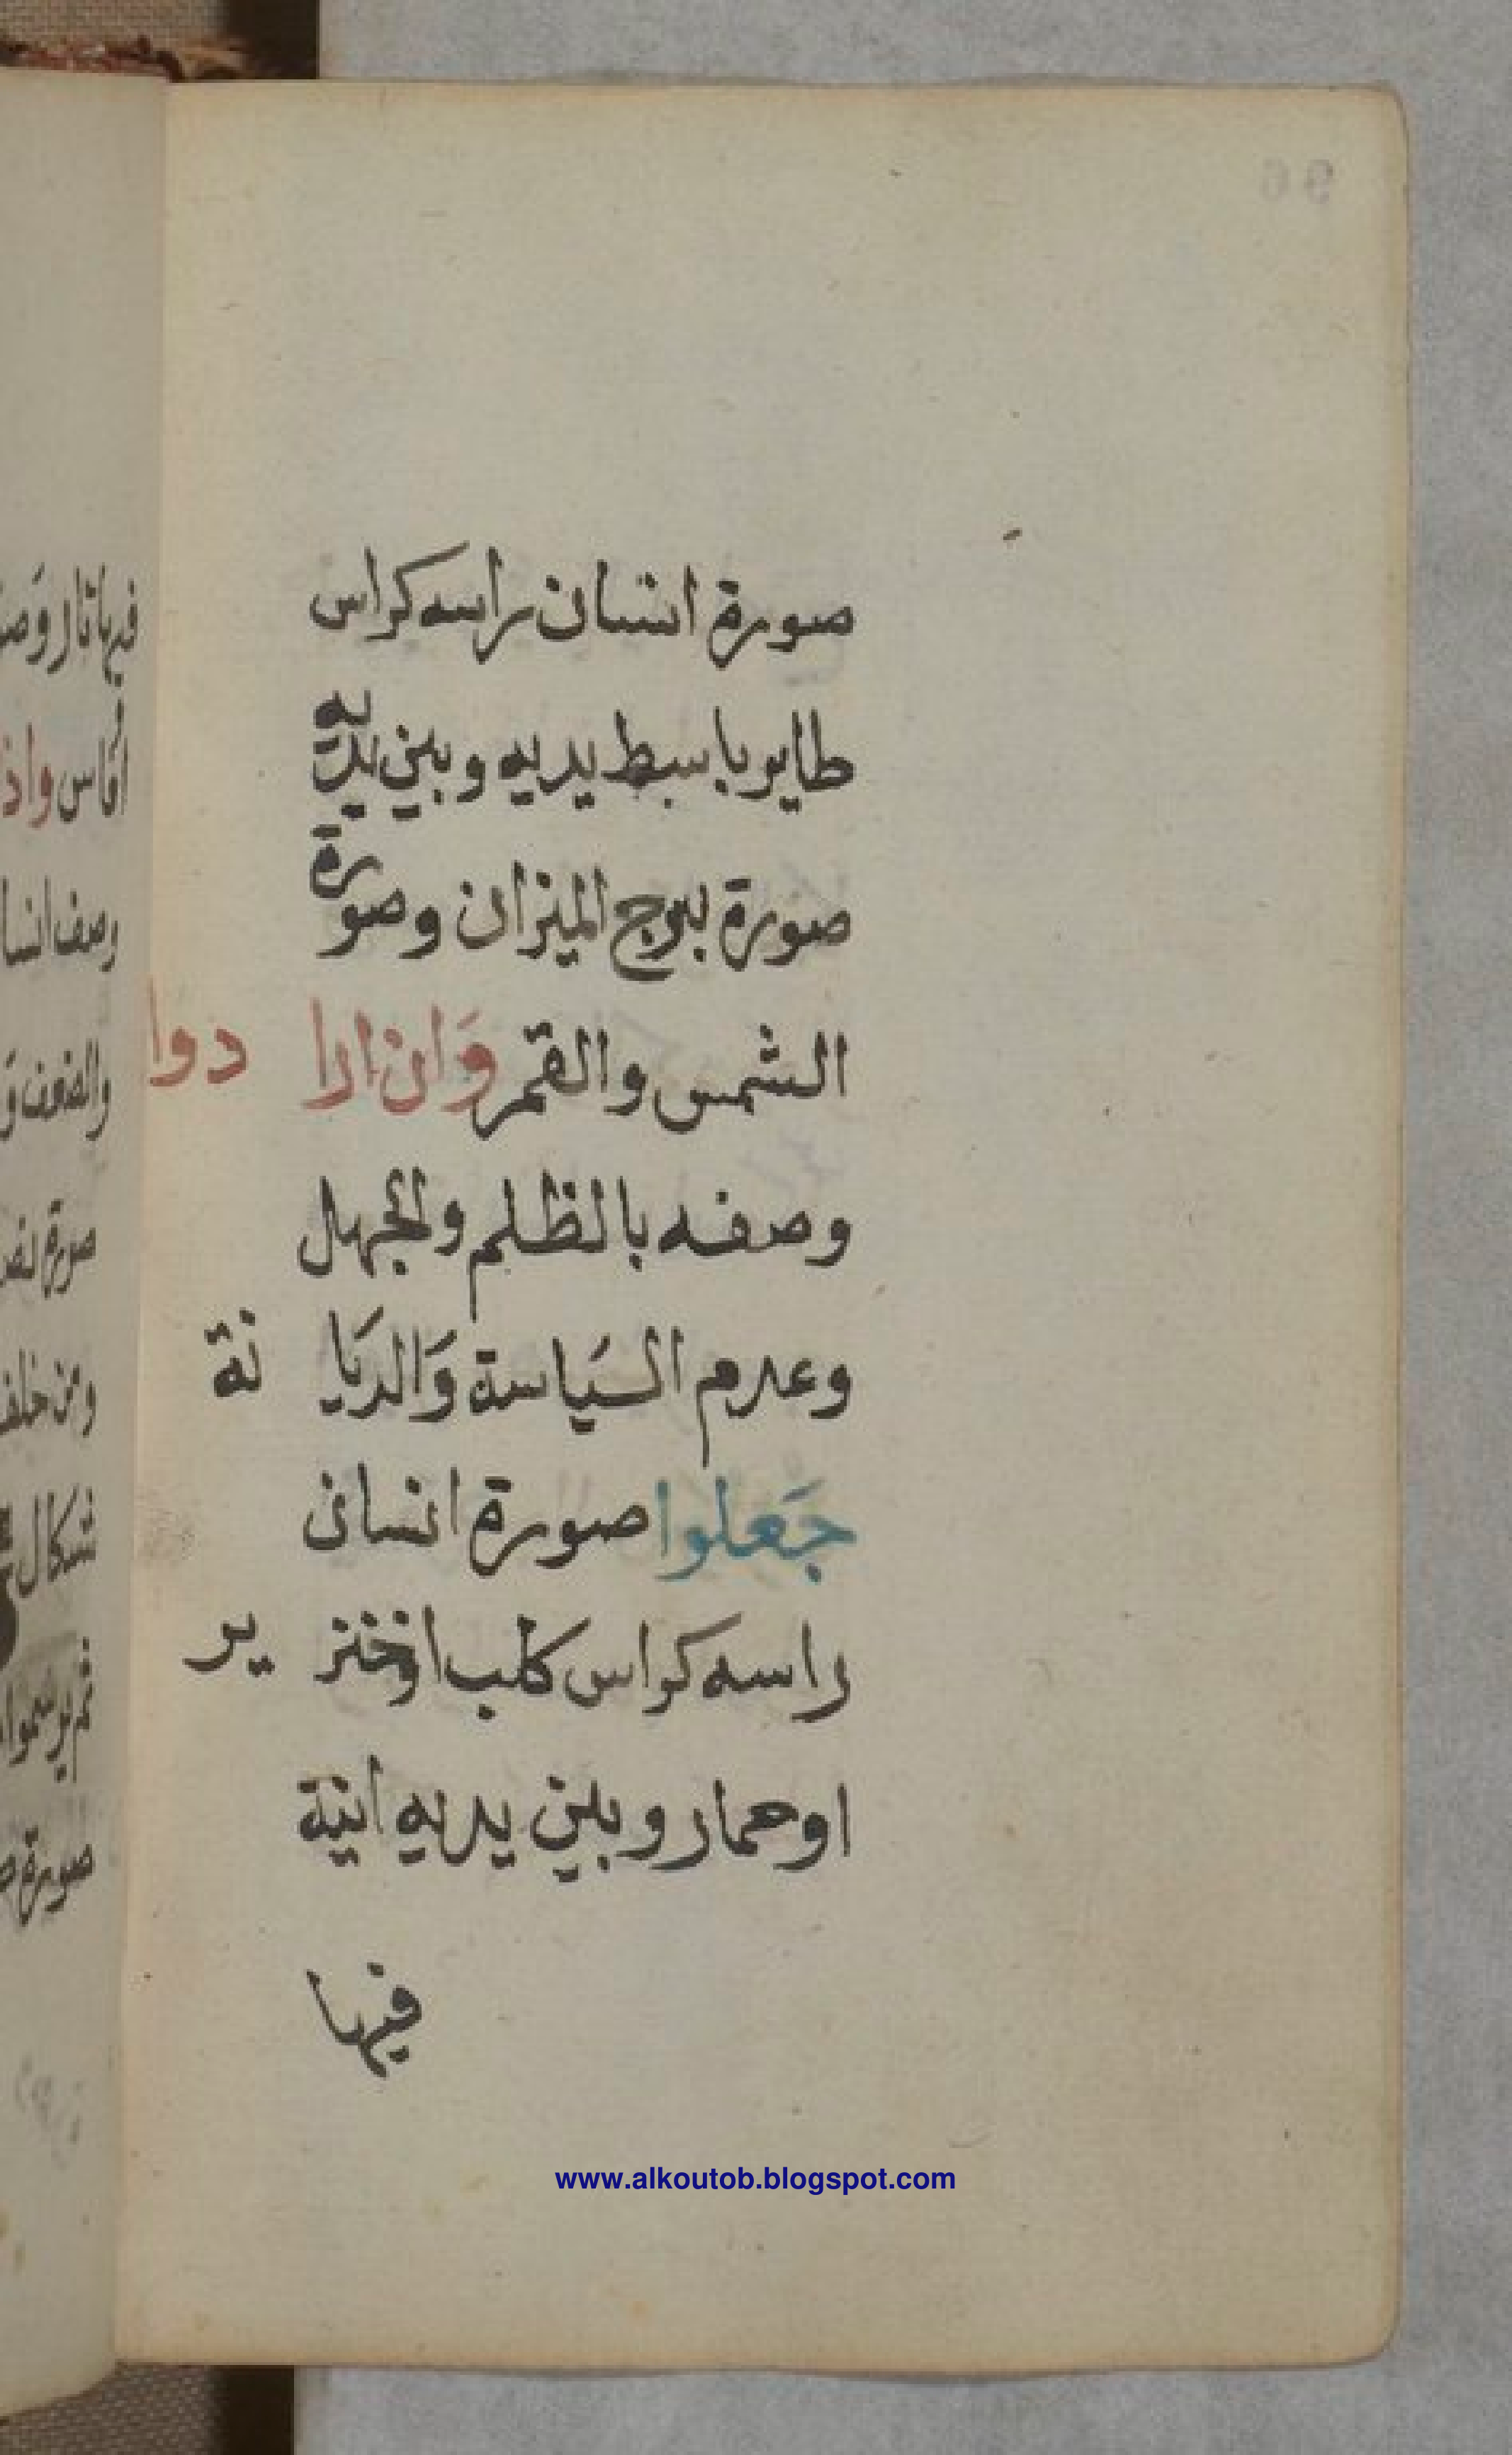 صورة انسان راسه كراس
طاير باسط يديه وبين يديه
صورة برج الميزان وصورة
الشمس والقمر وَان ارا دوا
وصفه بالظلم والجهل
وعدم السَياسة وَالديَا نة
جَعلوا صورة انسان
راسه كراس كلب اوخنز ير
اوحمار وبين يديه انية
فيها
www.alkoutob.blogspot.com